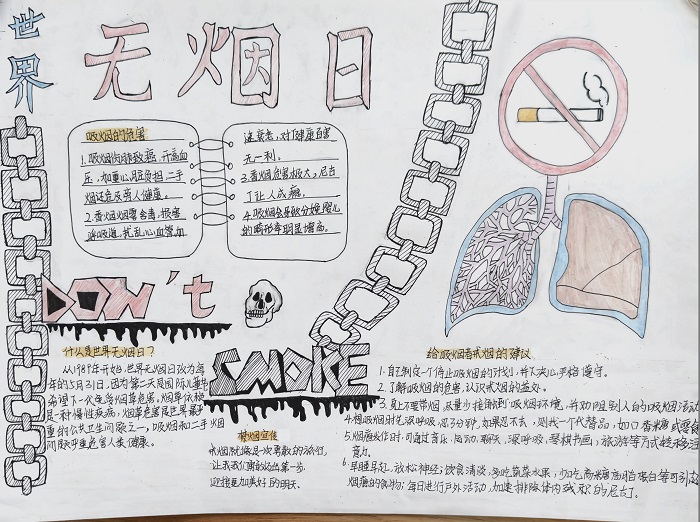 世界
无烟日
吸烟的危害
1.吸烟肉肺致癌,升高血
压,加重心脏负担,二手
烟还危及旁人健康。
2.香烟烟雾含毒,损害
呼吸道,扰乱心血管血
液氧老,对健康百害
无一利。
3.香烟危害极大,尼古
丁让人成瘾。
4.吸烟会导致分娩婴儿
的畸形率明显增高。
DON't
SMOKE
什么是世界无烟日?
从1989年开始,世界无烟日改为每
年的5月31日,因为第二天是国际儿童节,
希望下一代免受烟草危害。烟草依赖
是一种慢性疾病,烟草危害是世界最严
重的公共卫生问题之一,吸烟和二手烟
问题严重危害人类健康。
禁烟宣传
戒烟就像是一次勇敢的旅行,
让我们勇敢迈出第一步,
迎接更加美好的明天。
给吸烟者戒烟的建议
1.自己制定一个停止吸烟的计划,并下决心严格遵守。
2.了解吸烟的危害,认识戒烟的益处。
3.身上不要带烟,尽量少接触到吸烟环境,并劝阻别人的吸烟活动
4.烟吸烟时先深呼吸,忍5分钟,如果忍不去,则找一个代替品,如口香糖或零食
5.烟瘾发作时,可通过音乐,运动,聊天,深呼吸,琴棋书画,旅游等方式转移注
意力。
6.早睡早起,放松神经;饮食清淡,多吃蔬菜水果,少吃高米高脂高蛋白等可引起
烟瘾的食物;每日进行户外活动,加速排除体内残积的尼古丁。